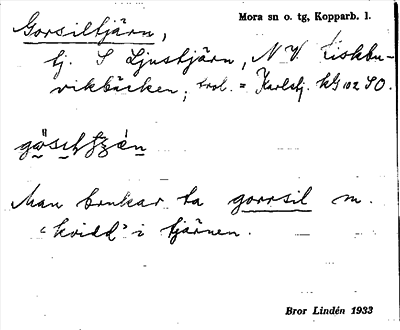 Gorsiltjärn,
Mora sn o. tg, Kopparb. l.
tj. S Ljustjärn, N V. Fiskbu-
vikbäcken; trol. = Karlstj. kG 102 SO.
Man brukar ta gorrsil m.
'kvidd' i tjärnen.
Bror Lindén 1933